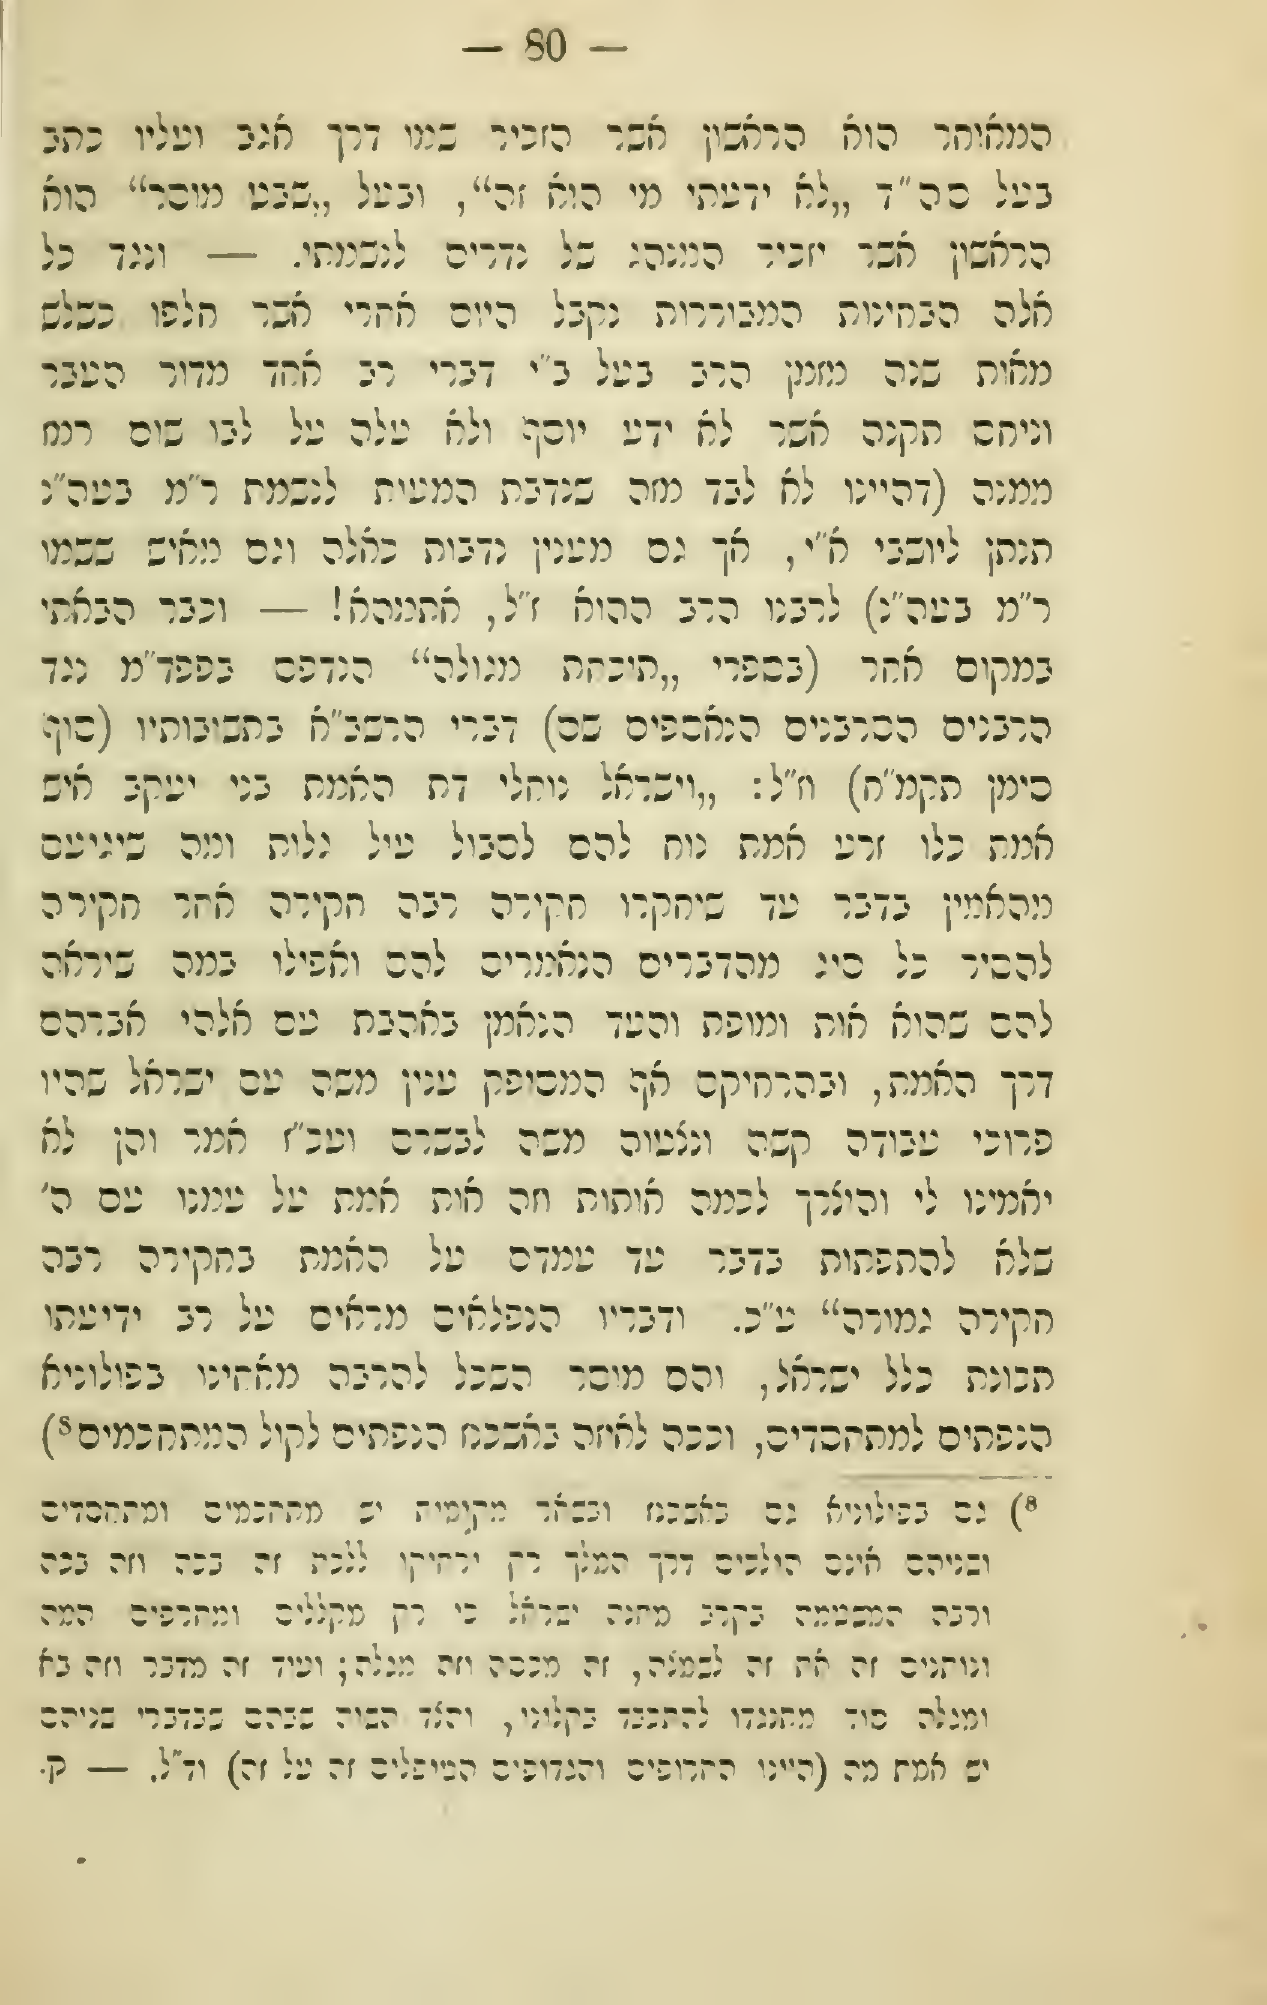 — 80 —
המאוחר הוא הראשון אשר הזכיר שמו דרך אגב ועליו כתב
בעל סה"ד „לא ידעתי מי הוא זה“, ובעל „שבט מוסר“ הוא
הראשון אשר יזכיר המנהג של נדרים לנשמתו. — ונגד כל
אלה הבחינות המבוררות נקבל היום אחרי אשר חלפו כשלש
מאות שנה מזמן הרב בעל ב"י דברי רב אחד מדור העבר
וניחס תקנה אשר לא ידע יוסף ולא עלה על לבו שום רמז
ממנה (דהיינו לא לבד מזה שנדבת המעות לנשמת ר"מ בעה"נ
תנתן ליושבי א"י, אך גם מענין נדבות כאלה וגם מאיש ששמו
ר"מ בעה"נ) לרבנו הרב ההוא ז"ל, אתמהא! — וכבר הבאתי
במקום אחר (בספרי „תוכחת מגולה“ הנדפס בפפד"מ נגד
הרבנים הסרבנים הנאספים שם) דברי הרשב"א בתשובותיו (סוף
סימן תקמ"ח) וז"ל: „וישראל נוחלי דת האמת בני יעקב איש
אמת כלו זרע אמת נוח להם לסבול עול גלות ומה שיגיעם
מהאמין בדבר עד שיחקרו חקירה רבה חקירה אחר חקירה
להסיר כל סיג מהדברים הנאמרים להם ואפילו במה שיראה
להם שהוא אות ומופת והעד הנאמן באהבת עם אלהי אברהם
דרך האמת, ובהרחיקם אף המסופק ענין משה עם ישראל שהיו
פרוכי עבודה קשה ונצטוה משה לבשרם ועכ"ז אמר והן לא
יאמינו לי והוצרך לכמה אותות וזה אות אמת על עמנו עם ה'
שלא להתפתות בדבר עד עמדם על האמת בחקירה רבה
חקירה גמורה“ ע"כ. ודבריו הנפלאים מראים על רב ידיעתו
תכונת כלל ישראל, והם מוסר השכל להרבה מאחינו בפולוניא
הנפתים למתחסדים, וככה לאיזה באשכנז הנפתים לקול המתחכמים⁸)
⁸) גם בפולוניא גם באשכנז ובשאר מקומות יש מתחכמים ומתחסדים
ושניהם אינם הולכים דרך המלך רק ירחיקו ללכת זה בכה וזה בכה
ורבה המשטמה בקרב מחנה ישראל כי רק מקללים ומחרפים המה
ונותנים זה את זה לשמצה, זה מכסה וזה מגלה; ועוד זה מדבר וזה בא
ומגלה סוד מתנגדו להתכבד בקלונו, והצד השוה שבהם שבדברי שניהם
יש אמת מה (היינו החרופים והגדופים הטיפלים זה על זה) וד"ל. — ק.